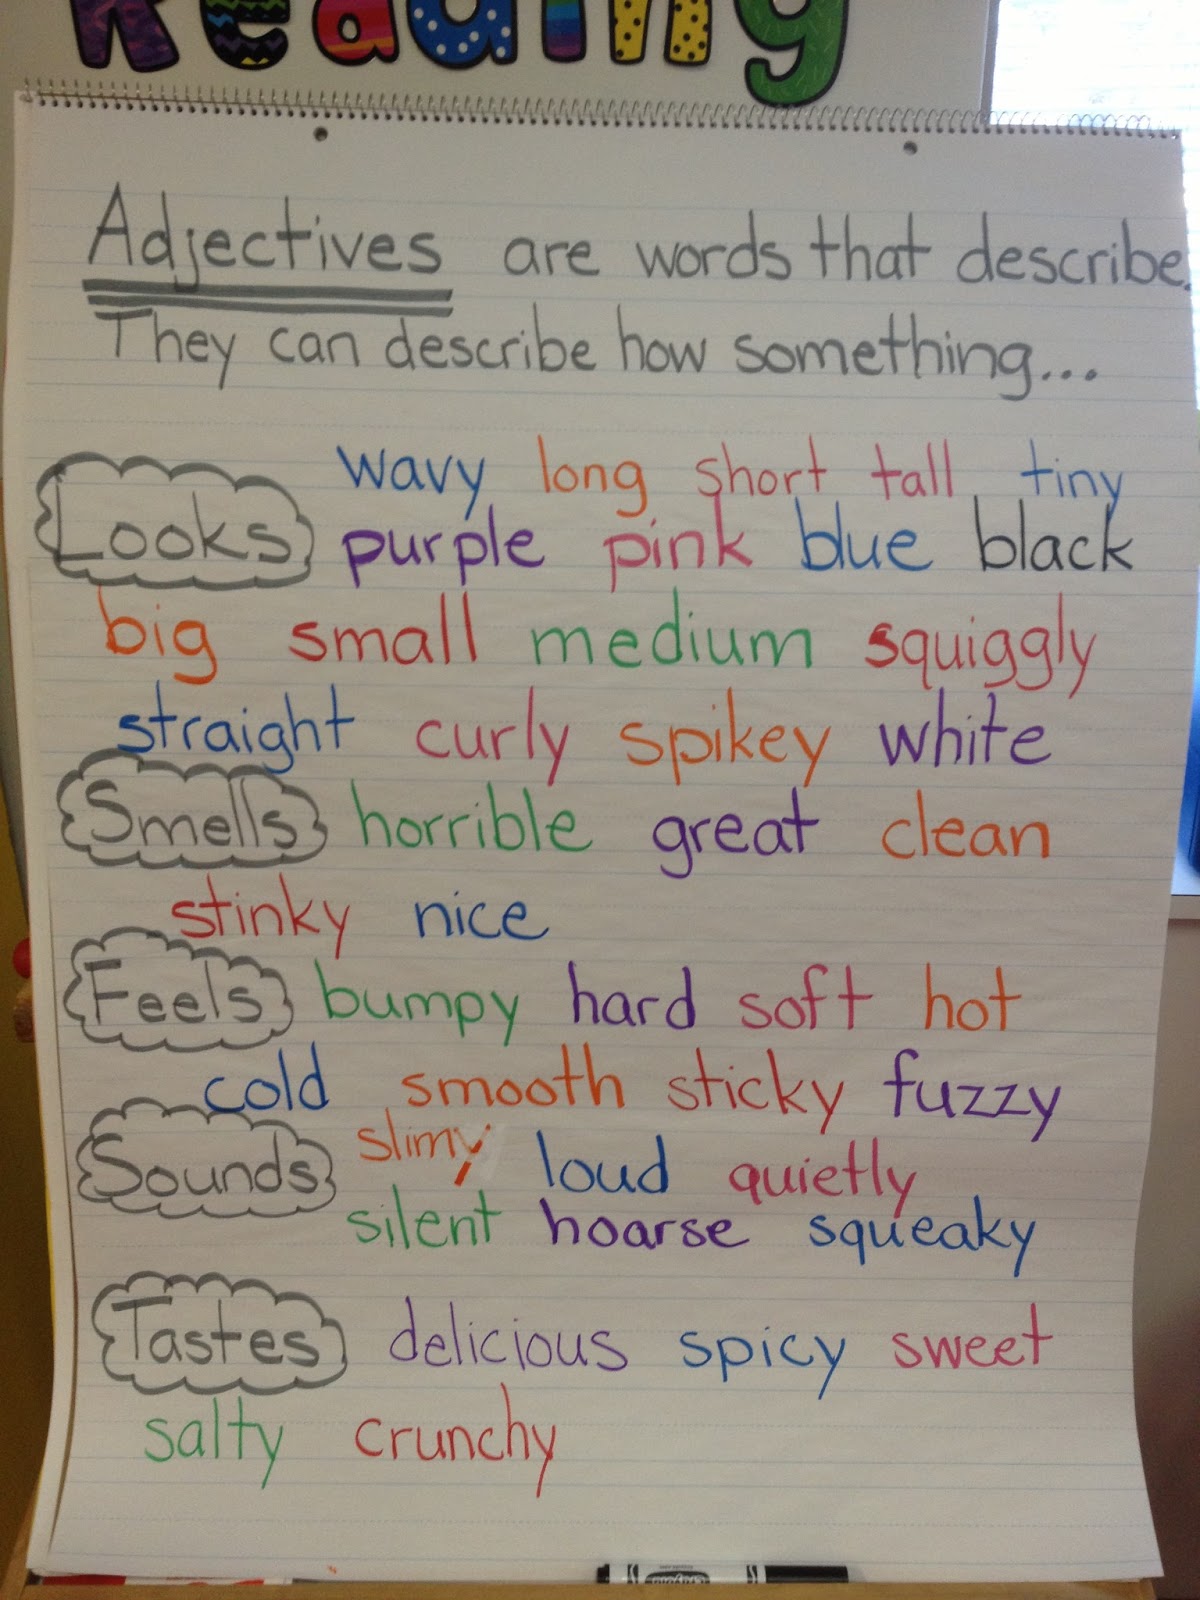 Reading
Adjectives are words that describe.
They can describe how something...
Looks wavy long short tall tiny
purple pink blue black
big small medium squiggly
straight curly spikey white
Smells horrible great clean
stinky nice
Feels bumpy hard soft hot
cold smooth sticky fuzzy
slimy
Sounds loud quietly
silent hoarse squeaky
Tastes delicious spicy sweet
salty crunchy
Crayola